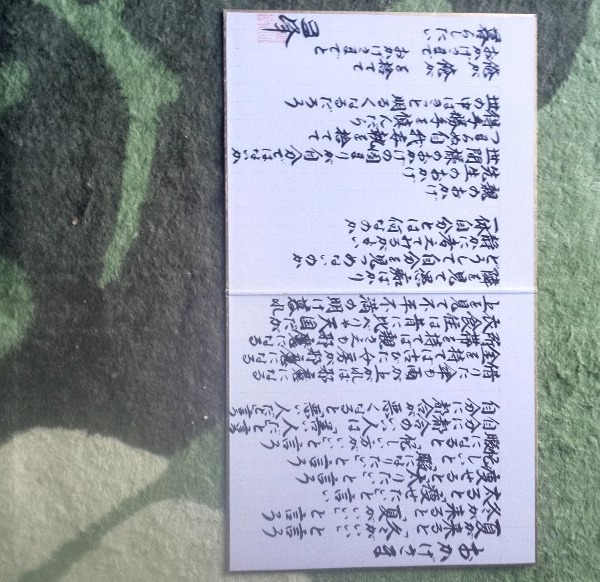 おかげさま
夏が来ると「冬がいい」と言う
冬が来ると「夏がいい」と言う
太ると「痩せたい」と言い
痩せると「太りたい」と言う
忙しいと「暇になりたい」と言い
暇になると「忙しい方がいい」と言う
自分に都合のいい人は善い人だと言い
自分に都合が悪くなると悪い人だと言う
借りた傘も雨が上がれば邪魔になる
金を持てば古びた女房が邪魔になる
所帯を持てば親さえも邪魔になる
衣食住は昔に比べりゃ天国だが
上を見て不平不満の明け暮れ
隣を見て愚痴ばかり
どうして自分を見つめないのか
静かに考えてみるがよい
一体自分とは何なのか
親のおかげ
先生のおかげ
世間様のおかげの固まりが自分ではないか
つまらぬ自我妄執を捨てて
得手勝手を慎んだら
世の中はきっと明るくなるだろう
俺が俺がを捨てて
おかげさまでおかげさまでと
暮らしたい